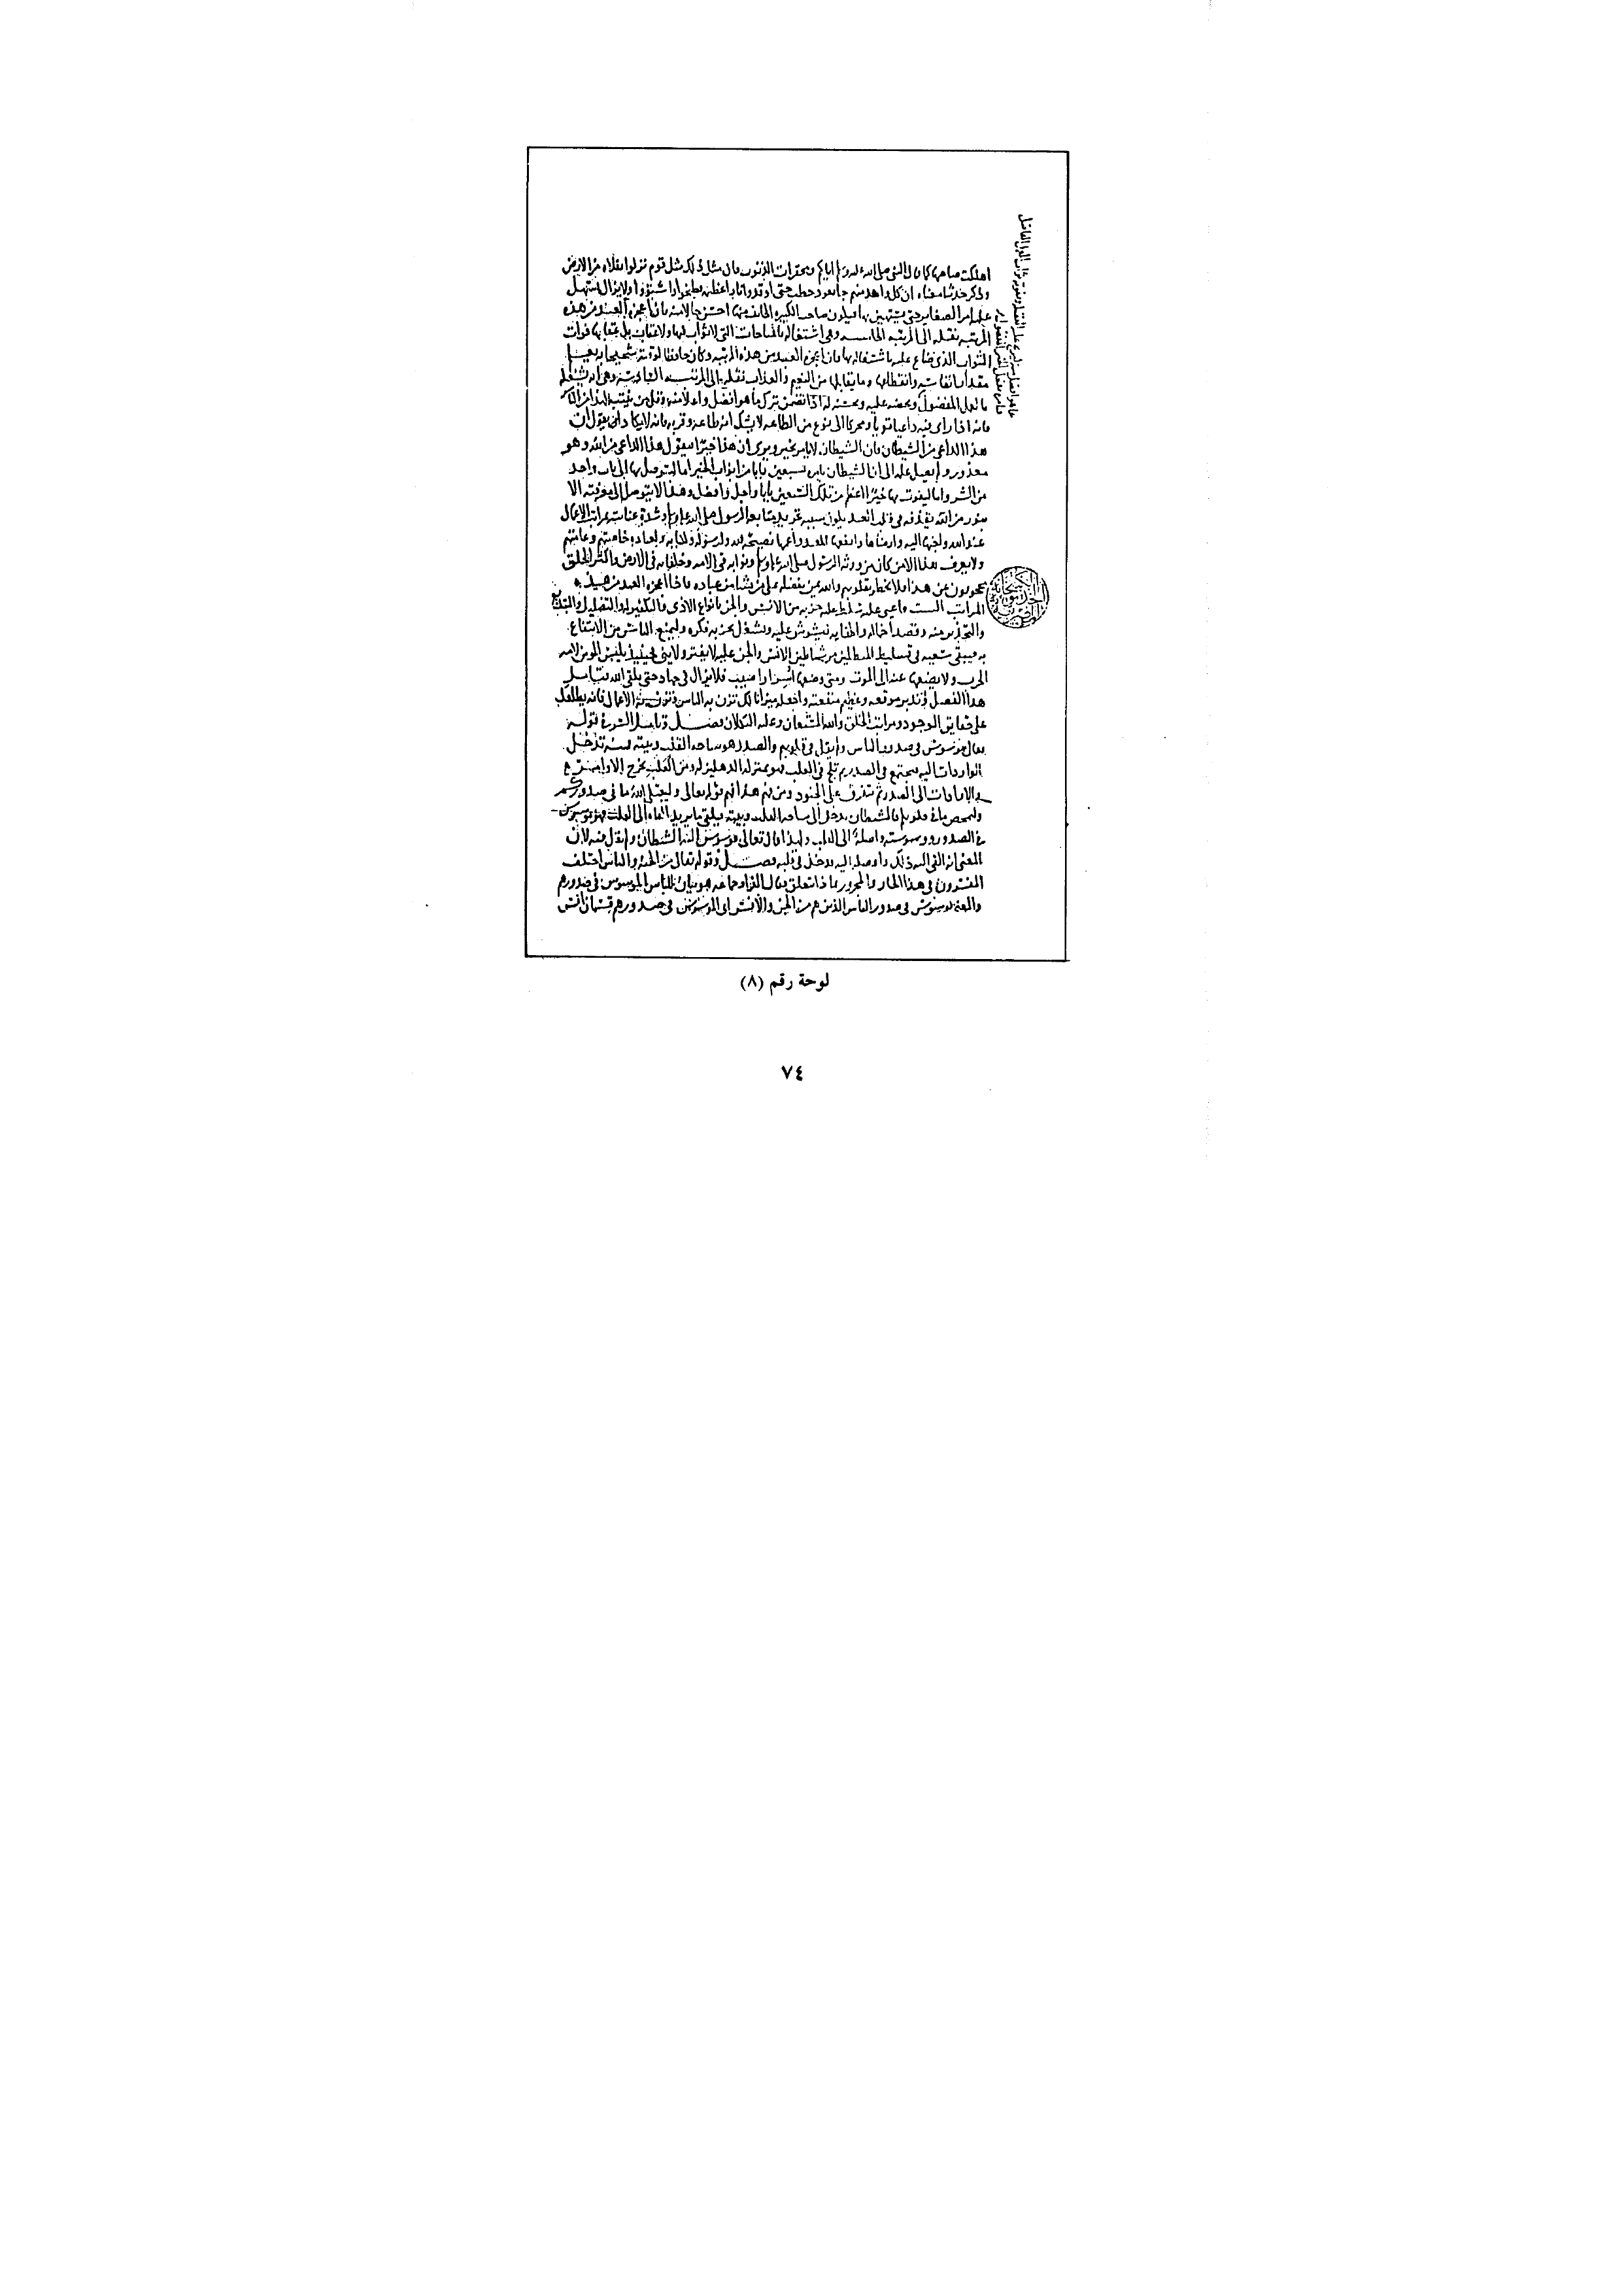 اهلكت صاحبها كما قال النبي صلى الله عليه وسلم اياكم ومحقرات الذنوب فان مثل ذلك مثل قوم نزلوا بفلاة من الارض
وذكر حديثا معناه ان كل واحد منهم جا بعود حطب حتى اوقدوا نارا عظيمة فطبخوا واشتووا ولا يزال يسهل
عليه امر الصغاير حتى يستهين بها فيكون صاحب الكبيرة الخائف منها احسن حالا منه فان اعجزه العبد من هذه
المرتبة نقله الى المرتبة الخامسه وهي اشتغاله بالمباحات التي لا ثواب فيها ولا عقاب بل عقابها فوات
الثواب الذي ضاع عليه باشتغاله بها فان اعجزه العبد من هذه المرتبه وكان حافظا لوقته شحيحا به يعلم
مقدار انفاسه وانقطاعها وما يقابلها من النعيم والعذاب نقله الى المرتبه السادسة وهي ان يشغله
بالعمل المفضول عما هو افضل منه
فانه اذا راى فيه داعيا قويا ومحركا الى نوع من الطاعه لا يشك انه طاعة وقربه فانه لا يكاد ان يقول ان
هذا الداعي من الشيطان فان الشيطان لا يامر بخير ويرى ان هذا خير فيقول هذا الداعي من الله وهو
معذور ولم يصل علمه الى ان الشيطان يامر بسبعين بابا من ابواب الخير اما ليتوصل بها الى باب واحد
من الشر واما ليفوت بها خيرا اعظم من تلك السبعين بابا واجل وافضل وهذا لا يتوصل الى معرفته الا
بنور من الله يقذفه في قلب العبد يكون سببه تجريد متابعة الرسول صلى الله عليه وسلم وشدة عنايته بمراتب الاعمال
عند الله واحبها اليه وارضاها له وانفعها للعبد واعمها نصيحة لله ولرسوله ولكتابه ولعباده خاصتهم وعامتهم
ولا يعرف هذا الا من كان من ورثة الرسول صلى الله عليه وسلم ونوابه في الامه وخلفائه في الارض واكثر الخلق
محجوبون عن هذا فلا يخطر بقلوبهم والله يمن بفضله على من يشا من عباده فاذا اعجزه العبد من هذه
المراتب الست واعيى عليه سلط عليه حزبه من الانس والجن بانواع الاذى والتكفير والتضليل والتبديع
والتحذير منه وقصد اخماله واطفايه ليشوش عليه ويشغل بحربه فكره وليمنع الناس من الانتفاع
به فيبقى سعيه في تسليط المبطلين من شياطين الانس والجن عليه لا يفتر ولا يني فحينئذ يلبس المومن لامه
الحرب ولا يضعها عنه الى الموت ومتى وضعها اسر او اصيب فلا يزال في جهاد حتى يلقى الله فتامل
هذا الفصل وتدبر موقعه وعظيم منفعته واجعله ميزانا لك تزن به الناس وتزن به الاعمال فانه يطلعك
على حقايق الوجود ومراتب الخلق والله المستعان وعليه التكلان فصل وتامل السر في قوله
تعالى يوسوس في صدور الناس ولم يقل في قلوبهم والصدر هو ساحة القلب وبيته فمنه تدخل
الواردات اليه فتجتمع في الصدر ثم تلج في القلب فهو بمنزلة الدهليز له ومن القلب تخرج الاوامر
والارادات الى الصدر ثم تتفرق على الجنود ومن فهم هذا فهم قوله تعالى وليبتلي الله ما في صدوركم
وليمحص ما في قلوبكم فالشيطان يدخل الى ساحة القلب وبيته فيلقي ما يريد القاه الى القلب فهو موسوس
في الصدور ووسوسته واصلة الى القلب ولهذا قال تعالى فوسوس اليه الشيطان ولم يقل فيه لان
المعنى انه القى اليه ذلك واوصله اليه فدخل في قلبه فصل وقوله تعالى من الجنة والناس اختلف
المفسرون في هذا الجار والمجرور بماذا تتعلق فقال الفراء وجماعه هو بيان للناس الموسوس في صدورهم
والمعنى يوسوس في صدور الناس الذين هم من الجن والانس اي الموسوس في صدورهم قسمان انس
لوحة رقم (٨)
٧٤